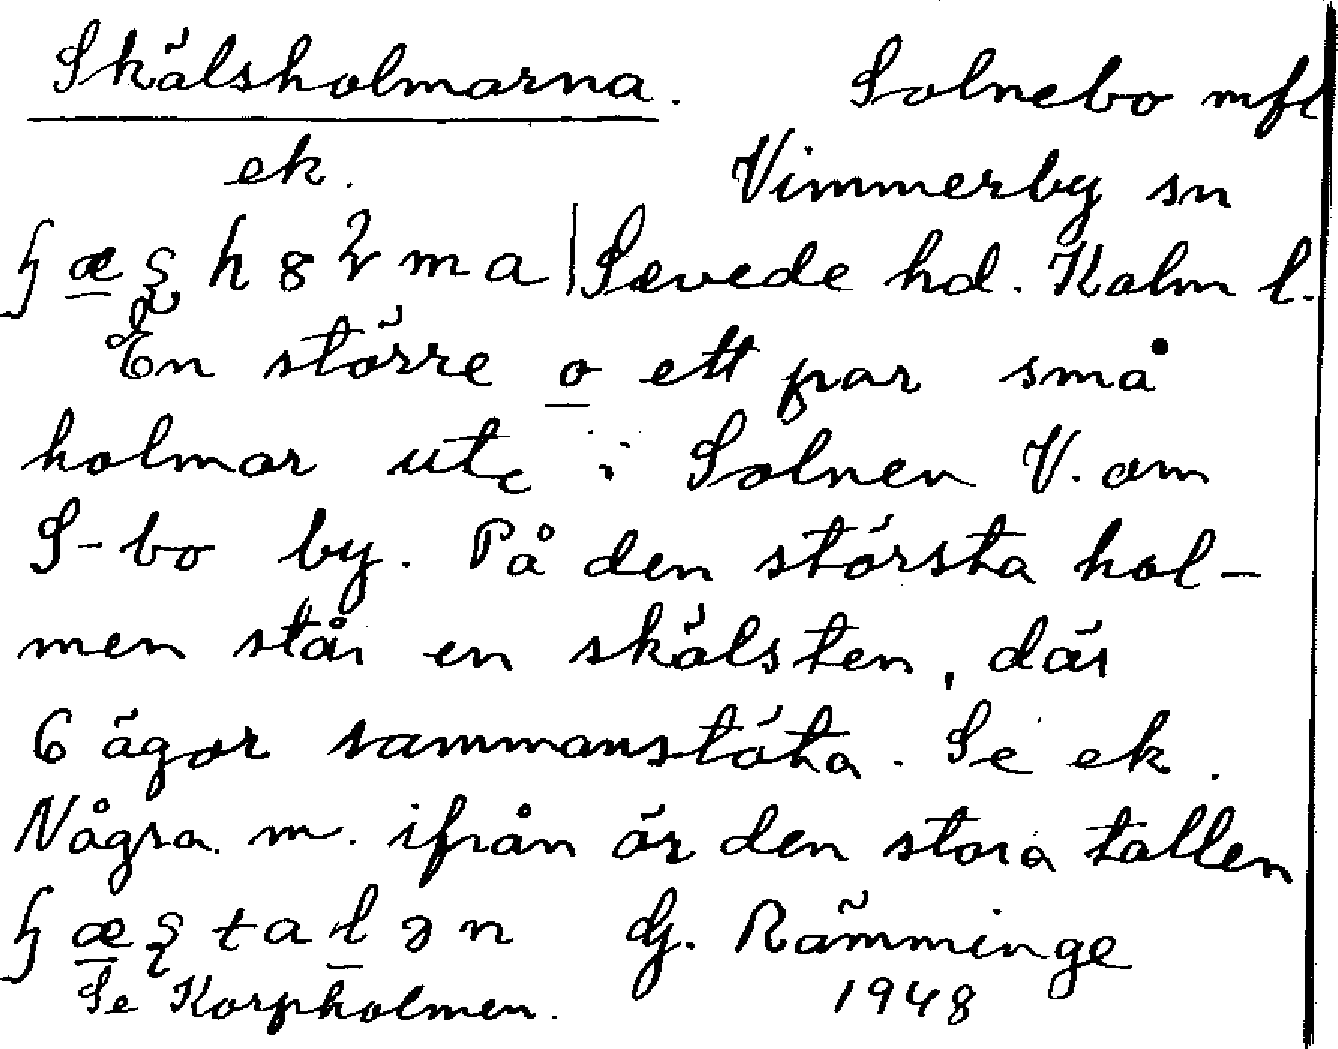 Skälsholmarna. Solnebo mfl
ek. Vimmerby sn
Sevede hd. Kalm l.
En större o ett par små
holmar ute i Solnen V. om
S-bo by. På den största hol-
men står en skälsten, där
6 ägor sammanstöta. Se ek.
Några m. ifrån är den stora tallen
G. Rämminge
Se Korpholmen. 1948